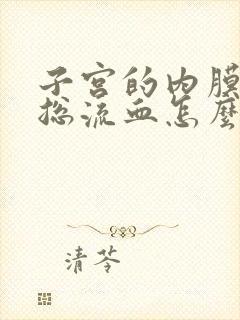 子宫的内膜
总流血怎麽
清苓